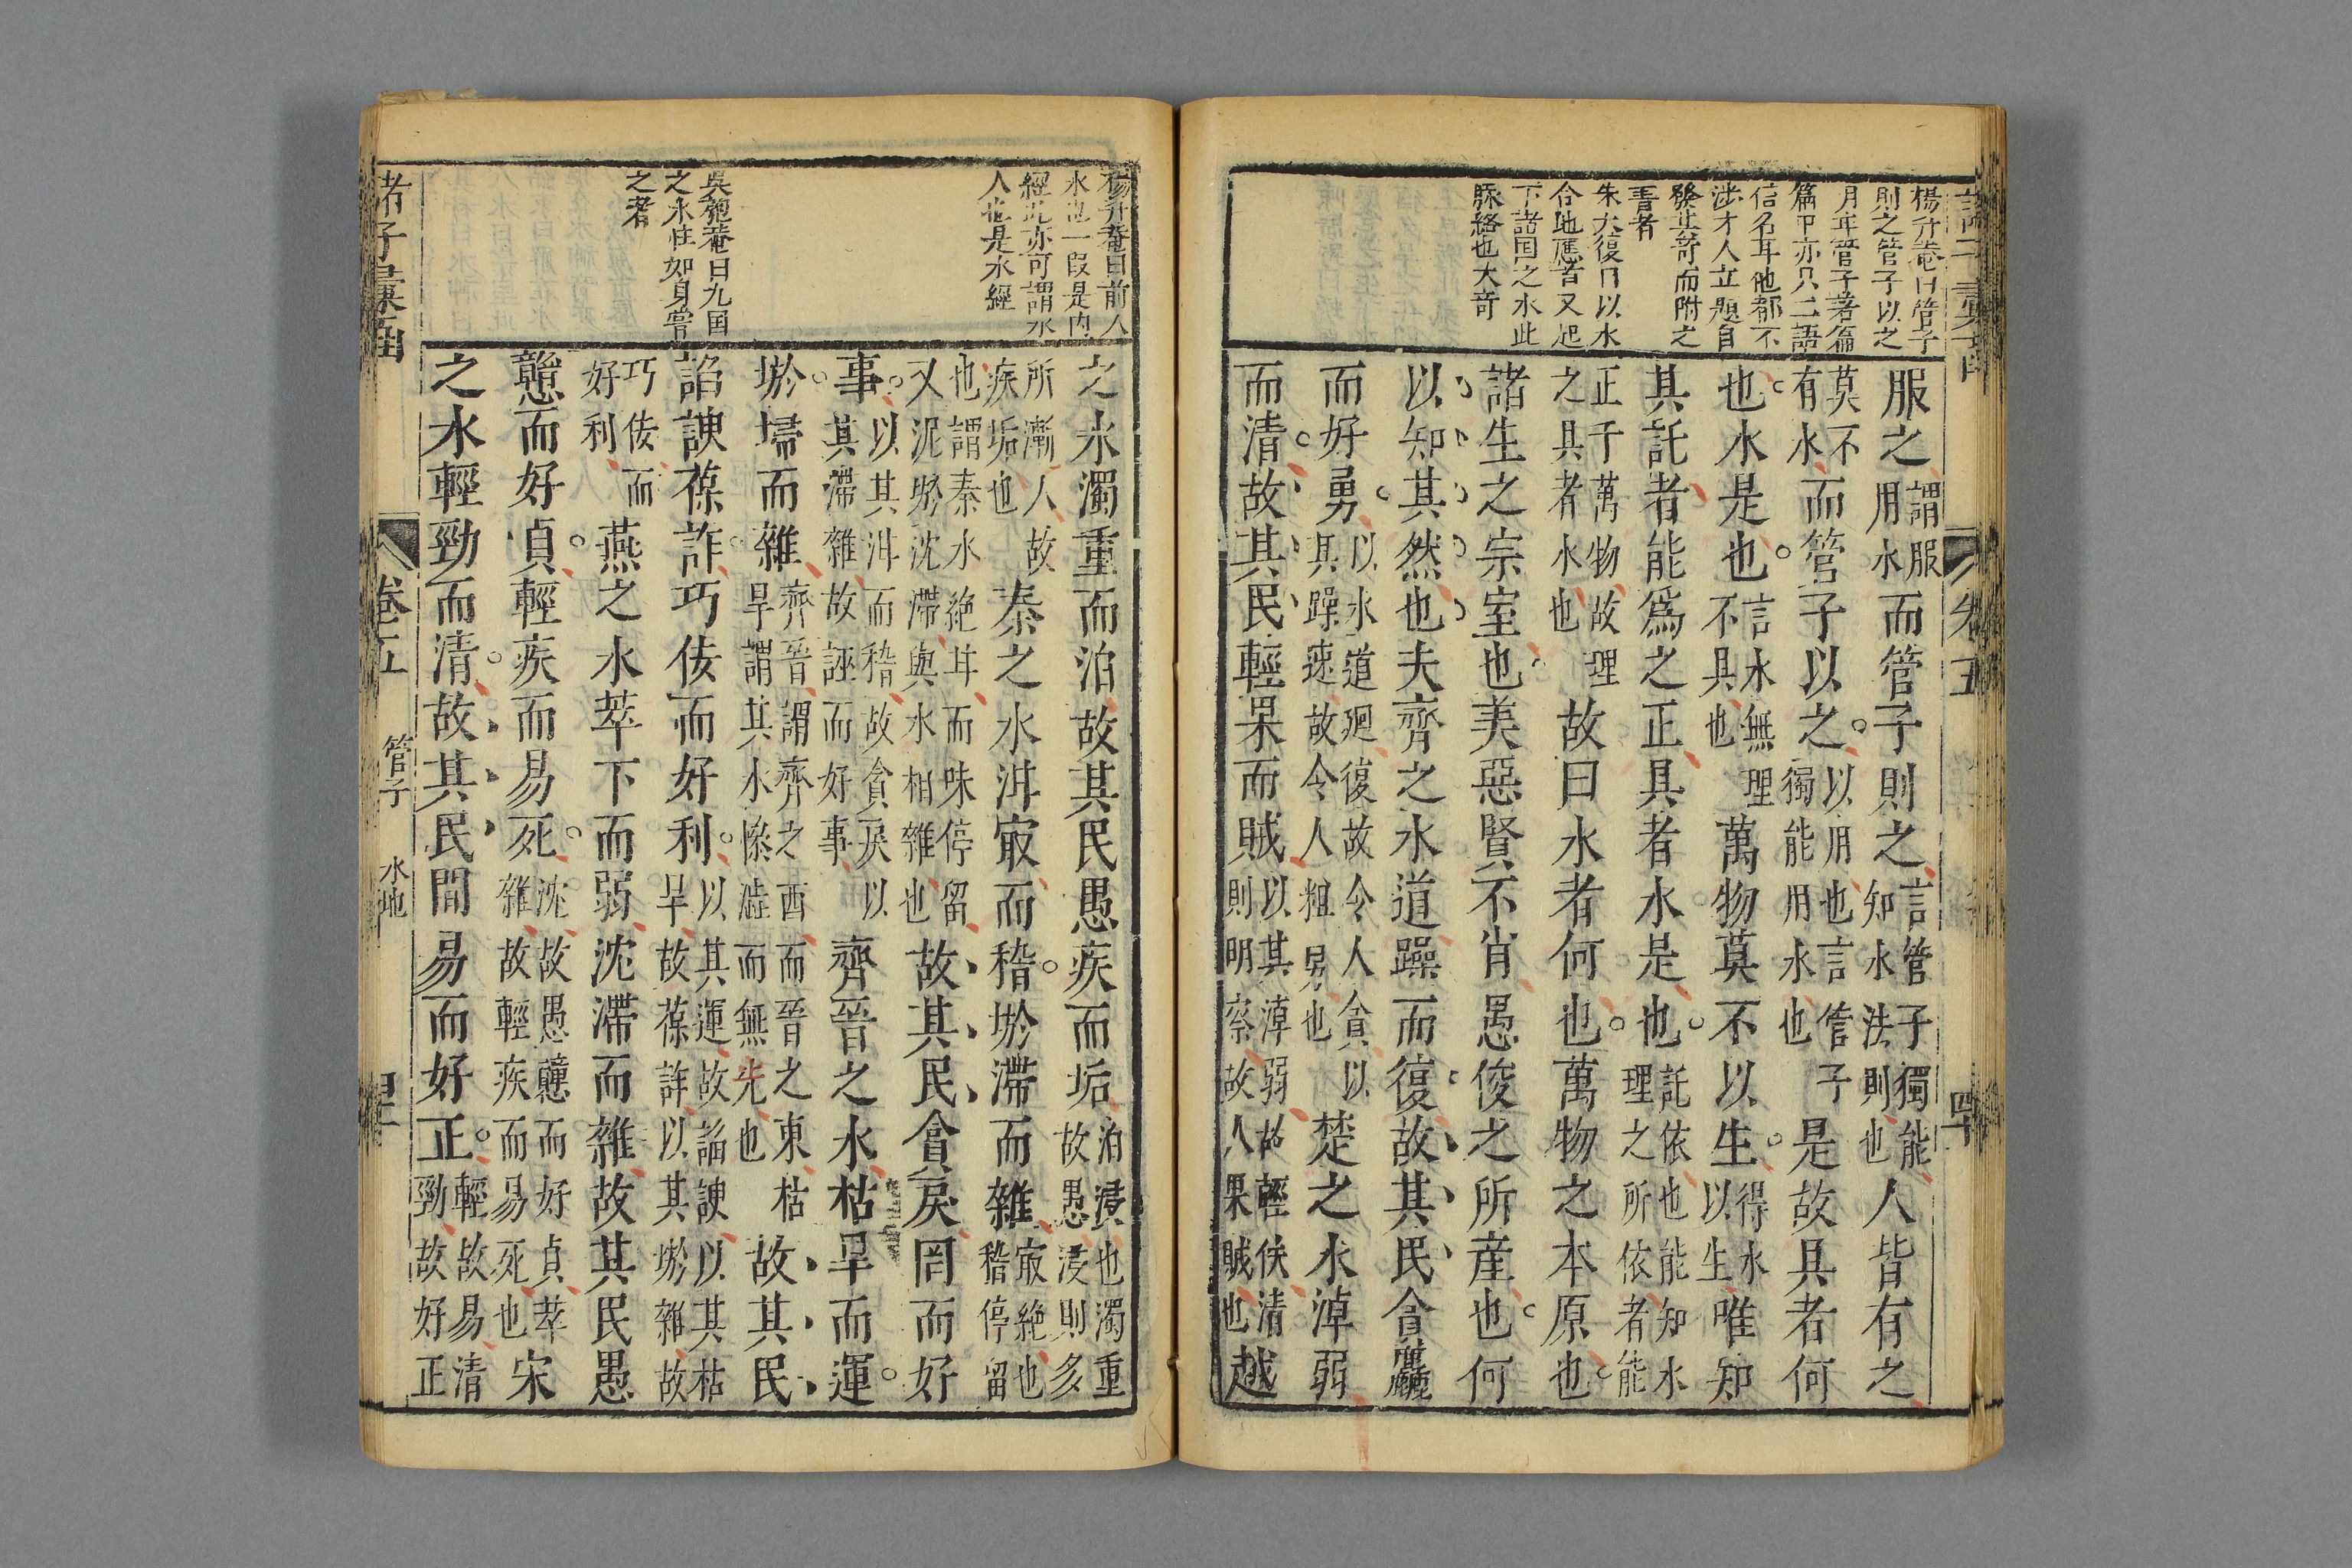 楊升菴曰管子
則之管子以之
月牟管子著篇
篇中亦只二語
信名耳他都不
法才人立題自
發其奇而附之
書者
朱大復曰以水
合地應者又起
下諸国之水此
脉絡也大奇
服之謂服用水而管子則之言管子獨能知水法則也人皆有之
莫不有水而管子以之以用也言管子獨能用水也是故具者何
也水是也言水無理不具也萬物莫不以生得水以生唯知
其託者能爲之正具者水是也託依也能知水理之所依者能
正千萬物故理之具者水也故曰水者何也萬物之本原也
諸生之宗室也美惡賢不肖愚俊之所産也何
以知其然也夫齊之水道躁而復故其民貪麤
而好勇以水道廻復故令人貪以其躁速故令人粗勇也楚之水淖弱
而清故其民輕果而賊以其淖弱故輕佚清則明察故人果賊也越
卷五
四十
楊升菴曰前人
水也一段是内
經此亦可謂水
人也是水經
吳匏菴曰九国
之水性如身嘗
之者
之水濁重而泊故其民愚疾而垢泊浸也濁重故愚浸則多
所漸人故疾垢也秦之水泔冣而稽淤滯而雜冣絶也稽停留
也謂秦水絶甘而味停留又泥淤沈滯與水相雜也故其民貪戾罔而好
事以其泔而稽故貪戾以其滯雜故誣而好事齊晉之水枯旱而運
淤埽而雜齊晉謂齊之西而晉之東枯旱謂其水慘澁而無光也故其民
諂諛葆詐巧佞而好利以其運故諂諛以其枯旱故葆詐以其淤雜故
巧佞而好利燕之水萃下而弱沈滯而雜故其民愚
戇而好貞輕疾而易死沈故愚戇而好貞萃雜故輕疾而易死也宋
之水輕勁而清故其民間易而好正輕故易清勁故好正
諸子彙函
卷五
管子
水地